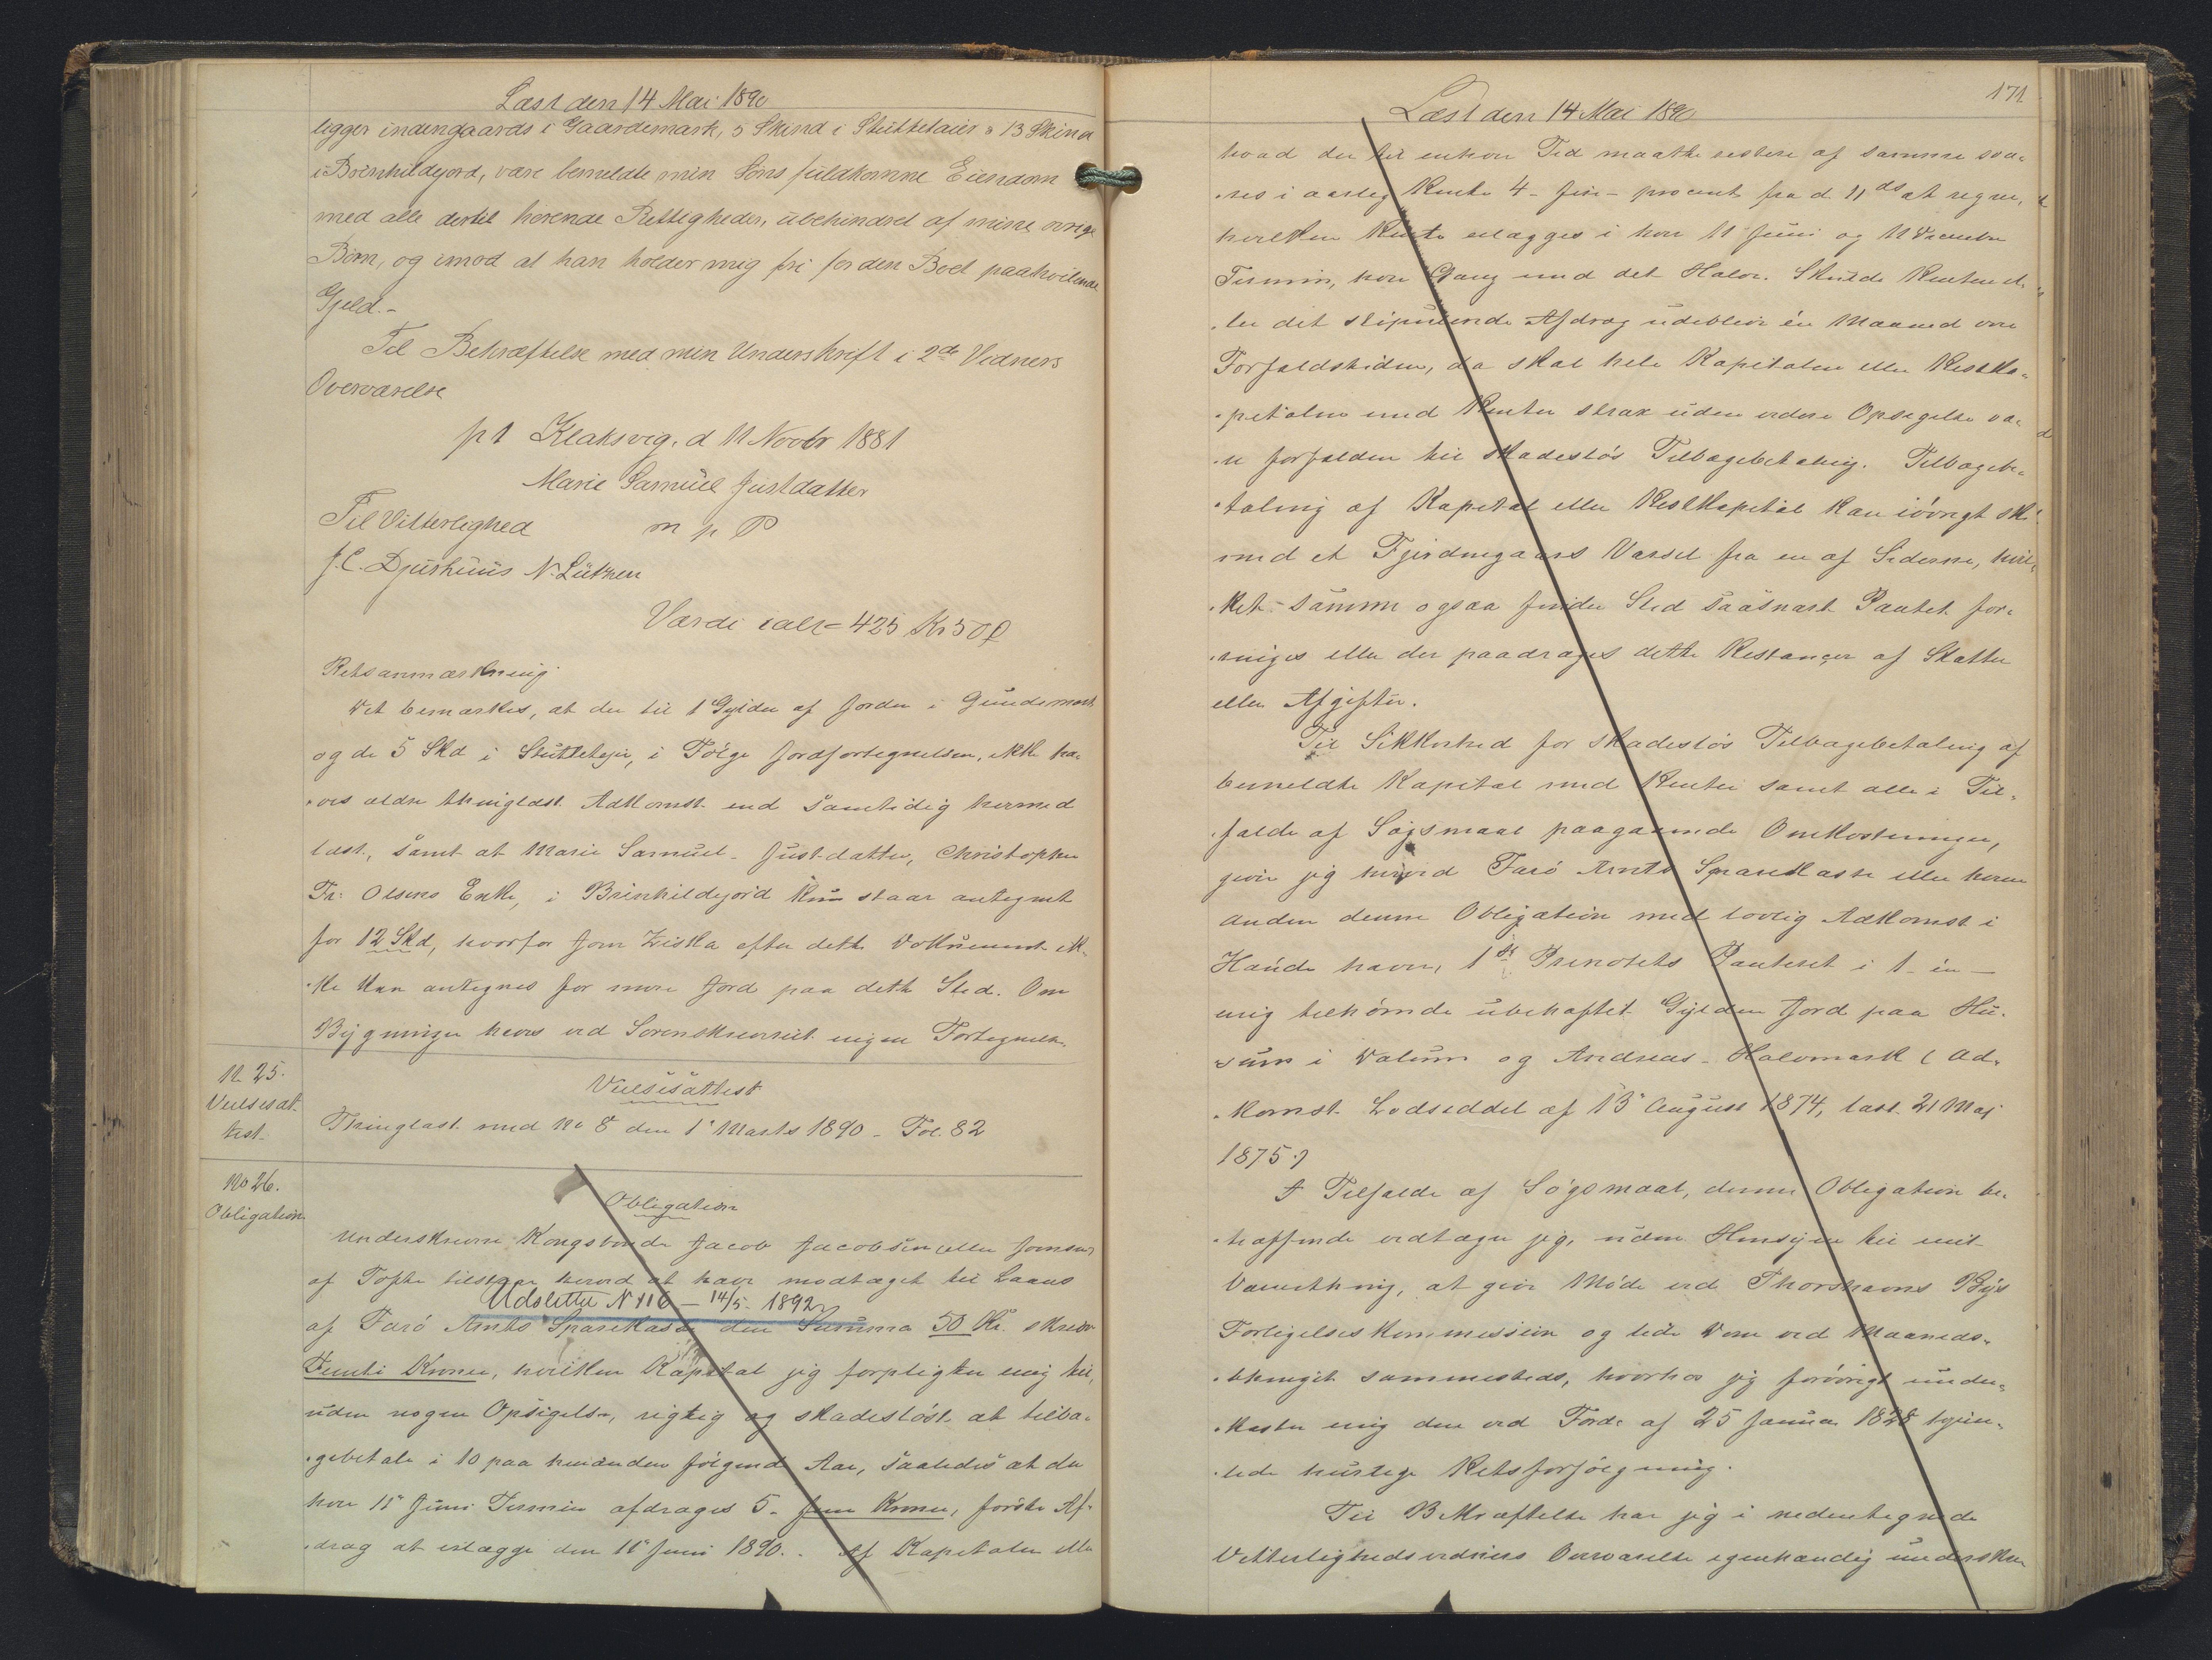 Læst den 14 Mai 1890
ligger indengaards i Gaardemark, 5 Skind i Stuttelaier & 13 Skind
i Brinhildejord, være bemeldte min Søns fuldkomne Eiendom
med alle dertil hørende Rettigheder, ubehindret af mine øvrige
Børn, og imod at han holder mig fri for den Boet paahvilende
Gjeld.-
Til Bekræftelse med min Underskrift i 2de Vidners
Overværelse
pt Klaksvig, d 11 Novbr 1881
Marie Samuel Justdatter
Til Vitterlighed m p P
J.C. Djurhuus N. Lützen
Værdi ialt = 425 Kr 50 ø
Retsanmærkning
Det bemærkes, at der til 1 Gylden af Jorden i Gundemark
og de 5 Skd i Stuttelejer, i Følge Jordfortegnelsen, ikke ha-
-ves ældre thinglæst Adkomst end samtidig hermed
læst, samt at Marie Samuel-Justdatter, Christopher
Fr: Olsens Enke, i Brinhildejord kun staar antegnet
for 12 Skd, hvorfor Joen Ziska efter dette Dokument ik-
-ke kan antegnes for mere Jord paa dette Sted. Om
Bygninger haves ved Sorenskriveriet ingen Fortegnelse.
N 25.
Vielsesat-
test.
Vielsesattest
Thinglæst med No 8 den 1' Marts 1890 - Fol. 82
No 26.
Obligation
Obligation
Underskrevne Kongsbonde Jacob Jacobsen eller Joensen
af Tofte tilstaar herved at have modtaget til Laans
Udslettet N 116 - 14/5. 1892
af Færø Amts Sparekasse den Summa 50 Kr. skriver
Femti Kroner, hvilken Kapital jeg forpligter mig til,
uden nogen Opsigelse, rigtig og skadesløst at tilba-
-gebetale i 10 paa hinanden følgende Aar, saaledes at der
hver 11' Juni Termin afdrages 5. fem Kroner, første Af-
-drag at erlægge den 11' Juni 1890. - Af Kapitalen eller
171
Læst den 14 Mai 1890
hvad der til enhver Tid maatte restere af samme sva-
-res i aarlig Rente 4 - fire - procent fra d. 11 ds at regne,
hvilken Rente erlægges i hver 11 Juni og 11 December
Termin, hver Gang med det Halve. Skulde Renten el-
-ler det stipulerede Afdrag udeblive én Maaned over
Forfaldstiden, da skal hele Kapitalen eller Restka-
-pitalen med Renter strax uden videre Opsigelse væ-
-re forfalden til skadesløs Tilbagebetaling. Tilbagebe-
-taling af Kapital eller Restkapital kan iøvrigt ske
med et Fjerdingaars Varsel fra en af Siderne, hvil-
-ket samme ogsaa finder Sted saasnart Pantet for-
-ringes eller der paadrages dette Restancer af Skatter
eller Afgifter.
Til Sikkerhed for skadesløs Tilbagebetaling af
bemeldte Kapital med Renter samt alle i Til-
-fælde af Søgsmaal paagaaende Omkostninger,
giver jeg herved Færø Amts Sparekasse eller hvem
anden denne Obligation med lovlig Adkomst i
Hænde haver, 1ste Prioritets Panteret i 1 - én -
mig tilhørende ubehæftet Gylden Jord paa Hu-
-sum i Dalum og Andreas-Halvmark (Ad-
-komst Lodseddel af 13' August 1874, læst 21 Maj
1875.)
I Tilfælde af Søgsmaal, denne Obligation be-
-træffende vedtager jeg, uden Hensyn til mit
Værnething, at give Møde ved Thorshavns Bys
Forligelseskommission og lide Dom ved Maaneds-
-thinget sammesteds, hvorhos jeg forøvrigt under-
-kaster mig den ved Frdn. af 25 Januar 1828 hjem-
-lede hurtige Retsforfølgning.
Til Bekræftelse har jeg i nedentegnede
Vitterlighedsvidners Overværelse egenhændig underskre-